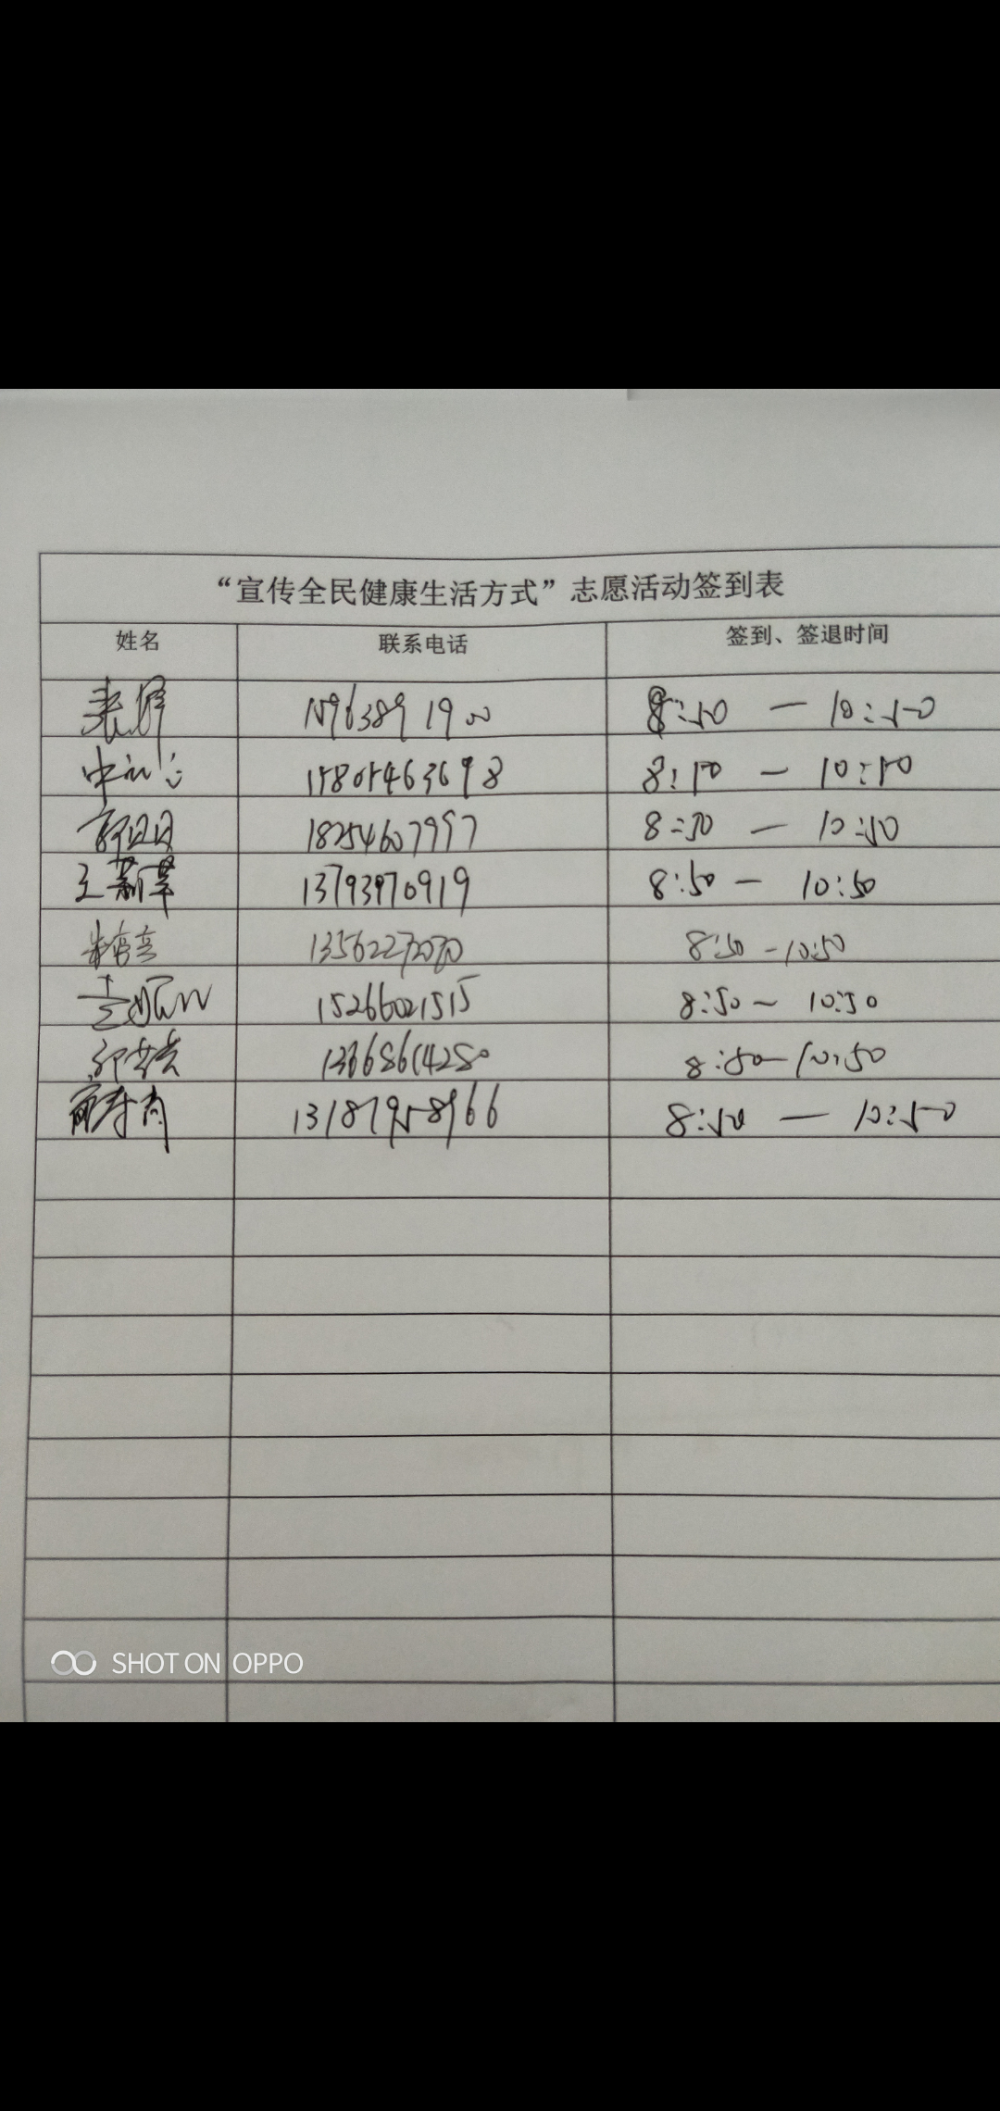 “宣传全民健康生活方式”志愿活动签到表
姓名 联系电话 签到、签退时间
15963891900 8:50 — 10:50
15805463698 8:50 — 10:50
18254607997 8:50 — 10:50
王 13793970919 8:50 — 10:50
13562272070 8:50 - 10:50
15266021515 8:50 ~ 10:50
13668614280 8:50 - 10:50
13187958966 8:50 — 10:50
SHOT ON OPPO